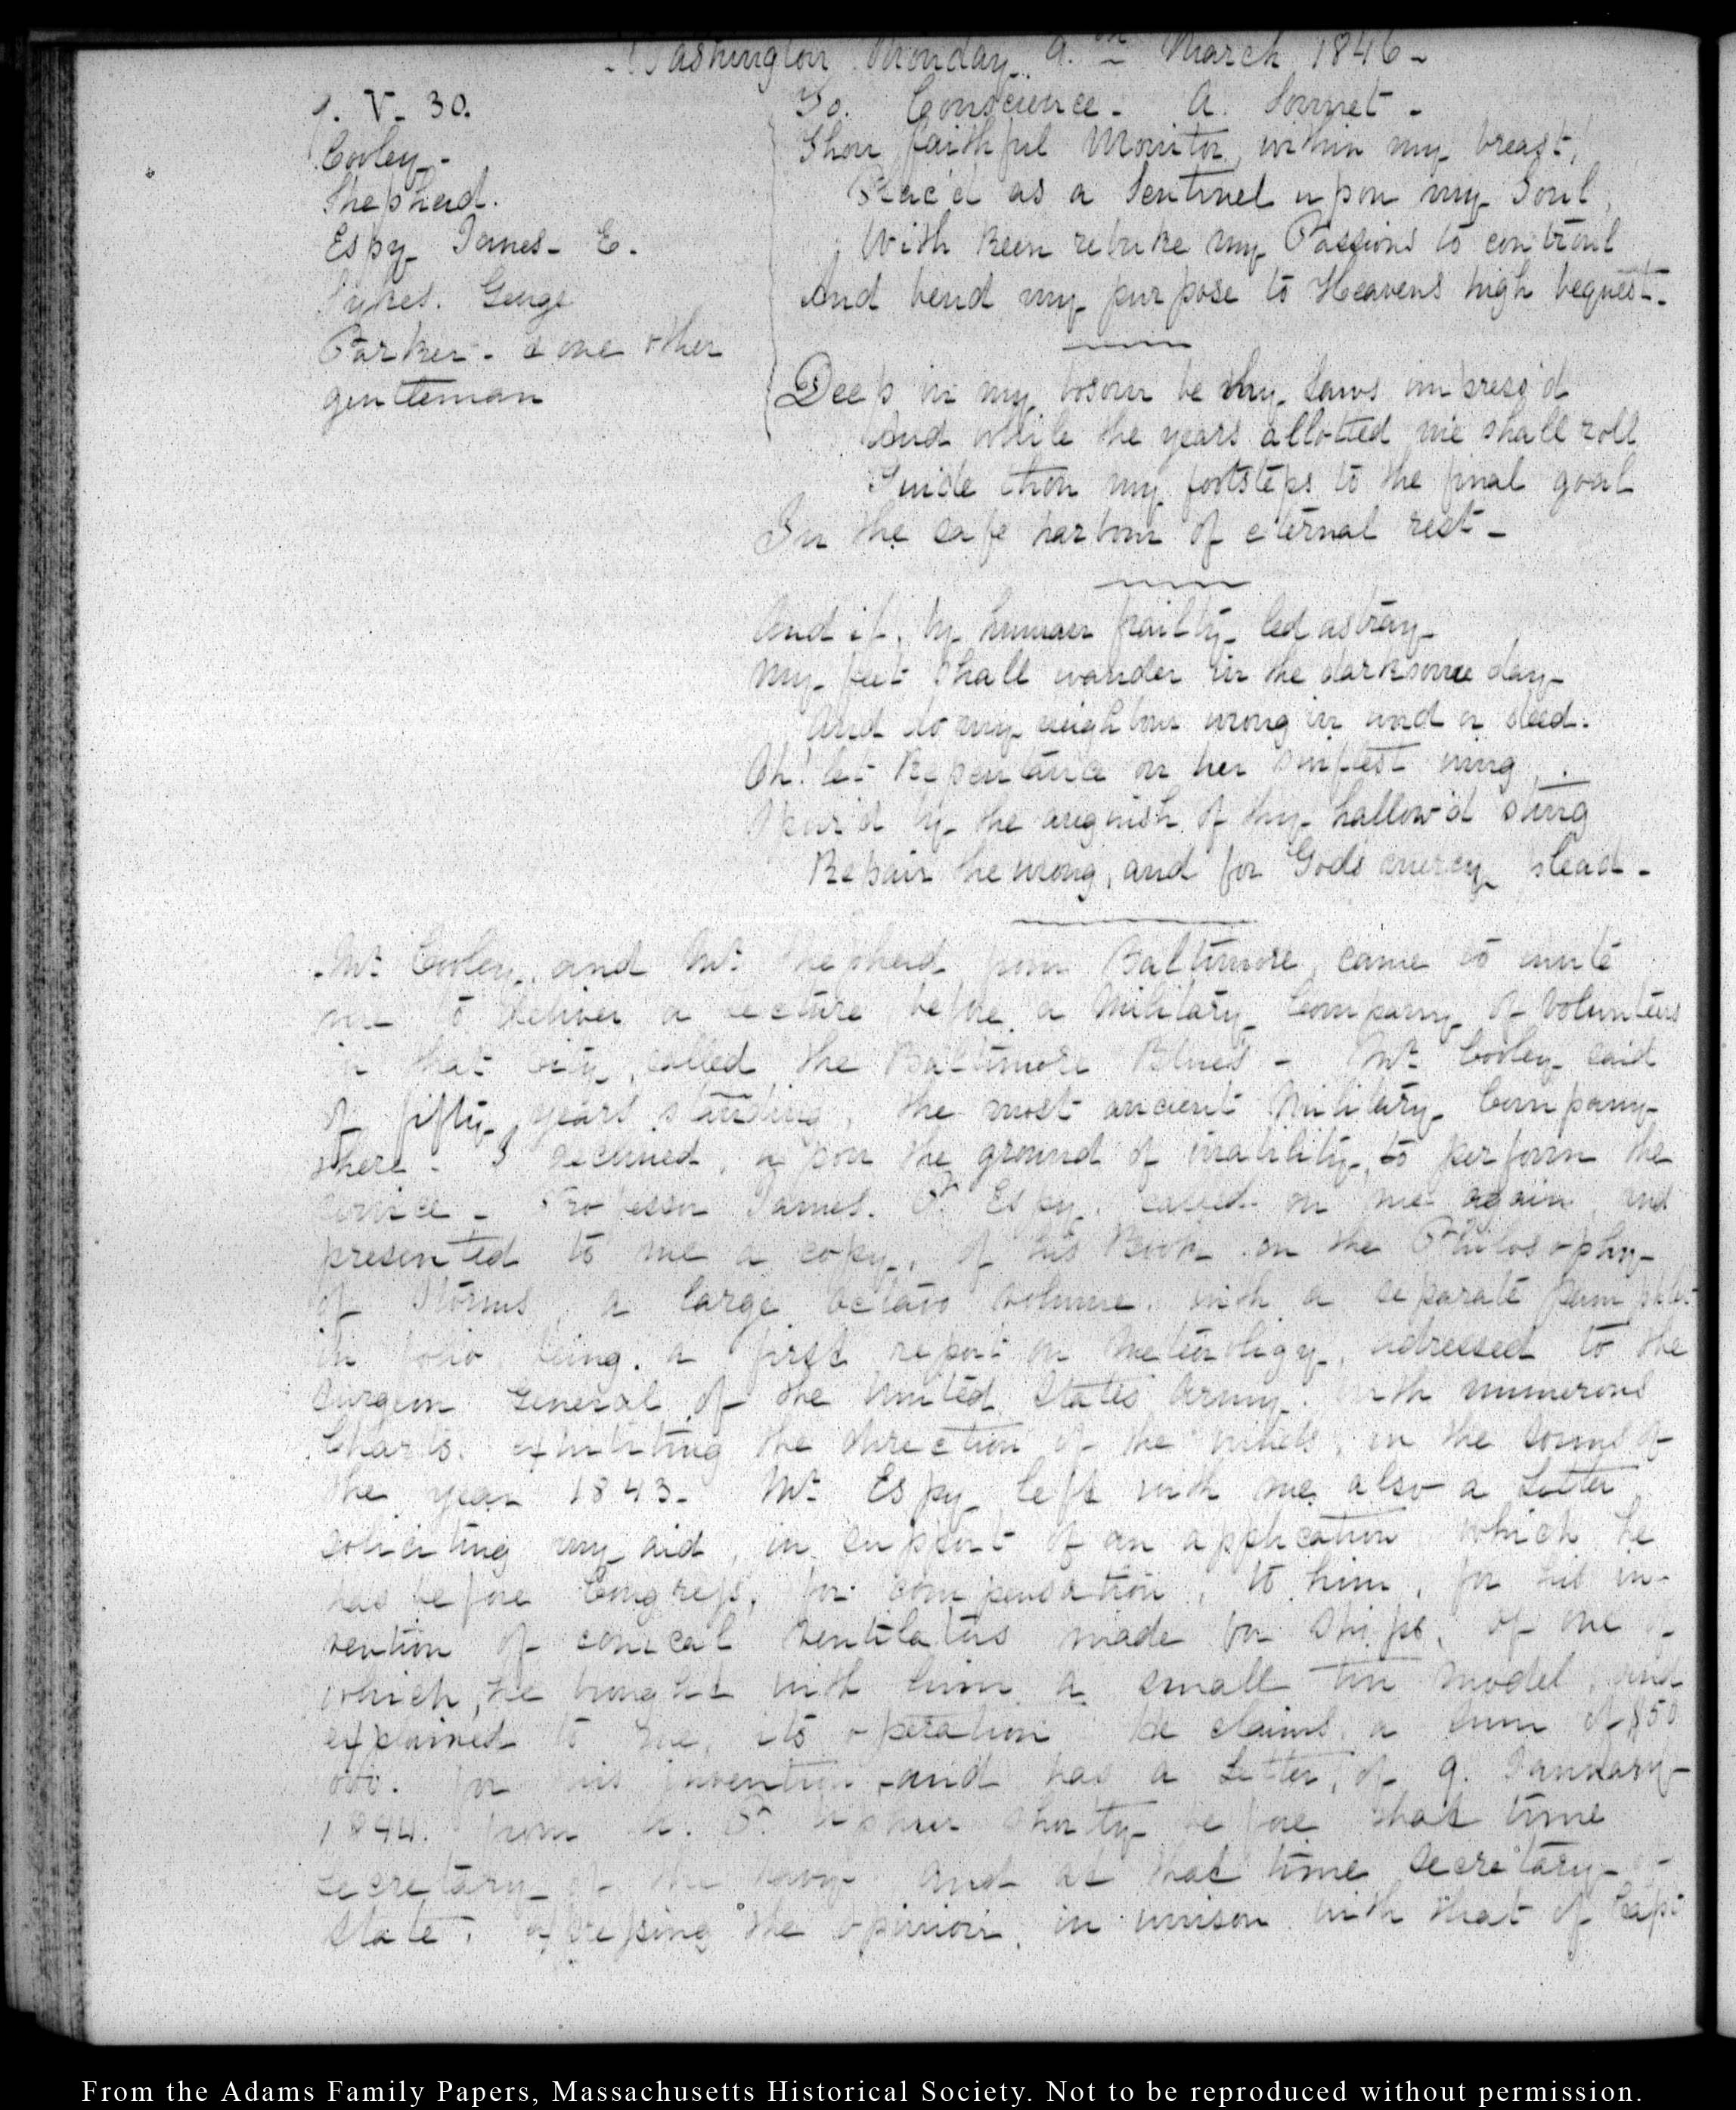 Washington Monday 9.th March 1846-
V- 30.
To. Conscience- A. Sonnet-
Cooley-
Shepherd.
Espy James- E.
Sykes. George
Parker- & one other
gentleman
Thou faithful Monitor, within my breast,
Plac'd as a Sentinel upon my Soul,
With keen rebuke my Passions to controul
And bend my purpose to Heavens high bequest-
Deep in my bosom be thy Laws impress'd
And while the years allotted me shall roll
Guide thou my footsteps to the final goal
In the safe harbour of eternal rest-
And if, by human frailty led astray-
My feet shall wander in the darksome day-
And do my neighbour wrong in word or deed.
Oh! let Repentance on her swiftest wing,
Spur'd by the anguish of thy hallow'd sting
Repair the wrong, and for Gods mercy plead-
Mr. Cooley, and Mr. Shepherd from Baltimore, came to invite
me to deliver a Lecture before a Military Company of Volunteers
in that City, called the Baltimore Blues- Mr. Cooley said
of fifty years standing, the most ancient Military Company
there- I declined, upon the ground of inability to perform the
service- Professor James. P. Espy. called on me again and
presented to me a copy, of his Book on the Philosophy-
of Storms, a large octavo volume, with a separate pamphlet
in folio being. a first report on Meteorology, adressed to the
Surgeon General of the United States Army. with numerous
Charts. exhibiting the direction of the winds, in the storms of
the year 1843- Mr. Espy left with me also a Letter
soliciting my aid, in support of an application which he
has before Congress, for compensation, to him, for his in-
vention of conical Ventilators made for Ships, of one
which, he brought with him a small tin model, and
explained to me, its operation he claims a sum of $50
000. for his invention and has a Letter, of 9. January-
1844. from A. P. Upshur shortly before that time
Secretary of the Navy and at that time Secretary of
State. expressing the opinion, in unison with that of Capt
From the Adams Family Papers, Massachusetts Historical Society. Not to be reproduced without permission.